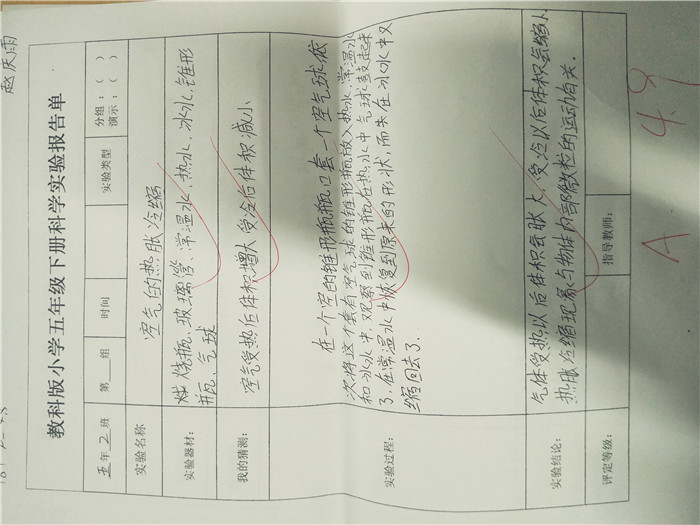 赵庆雨
教科版小学五年级下册科学实验报告单
五年2班 第 组 时间 实验类型 分组:( )
演示:( )
实验名称 空气的热胀冷缩
实验器材: 烧瓶、玻璃管、常温水、热水、冰水、锥形
瓶、气球
我的猜测: 空气受热后体积增大受冷后体积减小
实验过程: 在一个空的锥形瓶瓶口套一个空气球依
次将这个套有空气球的锥形瓶放入热水、常温水
和冰水中,观察到锥形瓶在热水中气球鼓起来
了,在常温水中恢复到原来的形状,而未在冰水中又
缩回去了.
实验结论: 气体受热以后体积会胀大,受冷以后体积会缩小
热胀冷缩现象与物体内部微粒的运动有关.
评定等级: 指导教师:
A 4.9